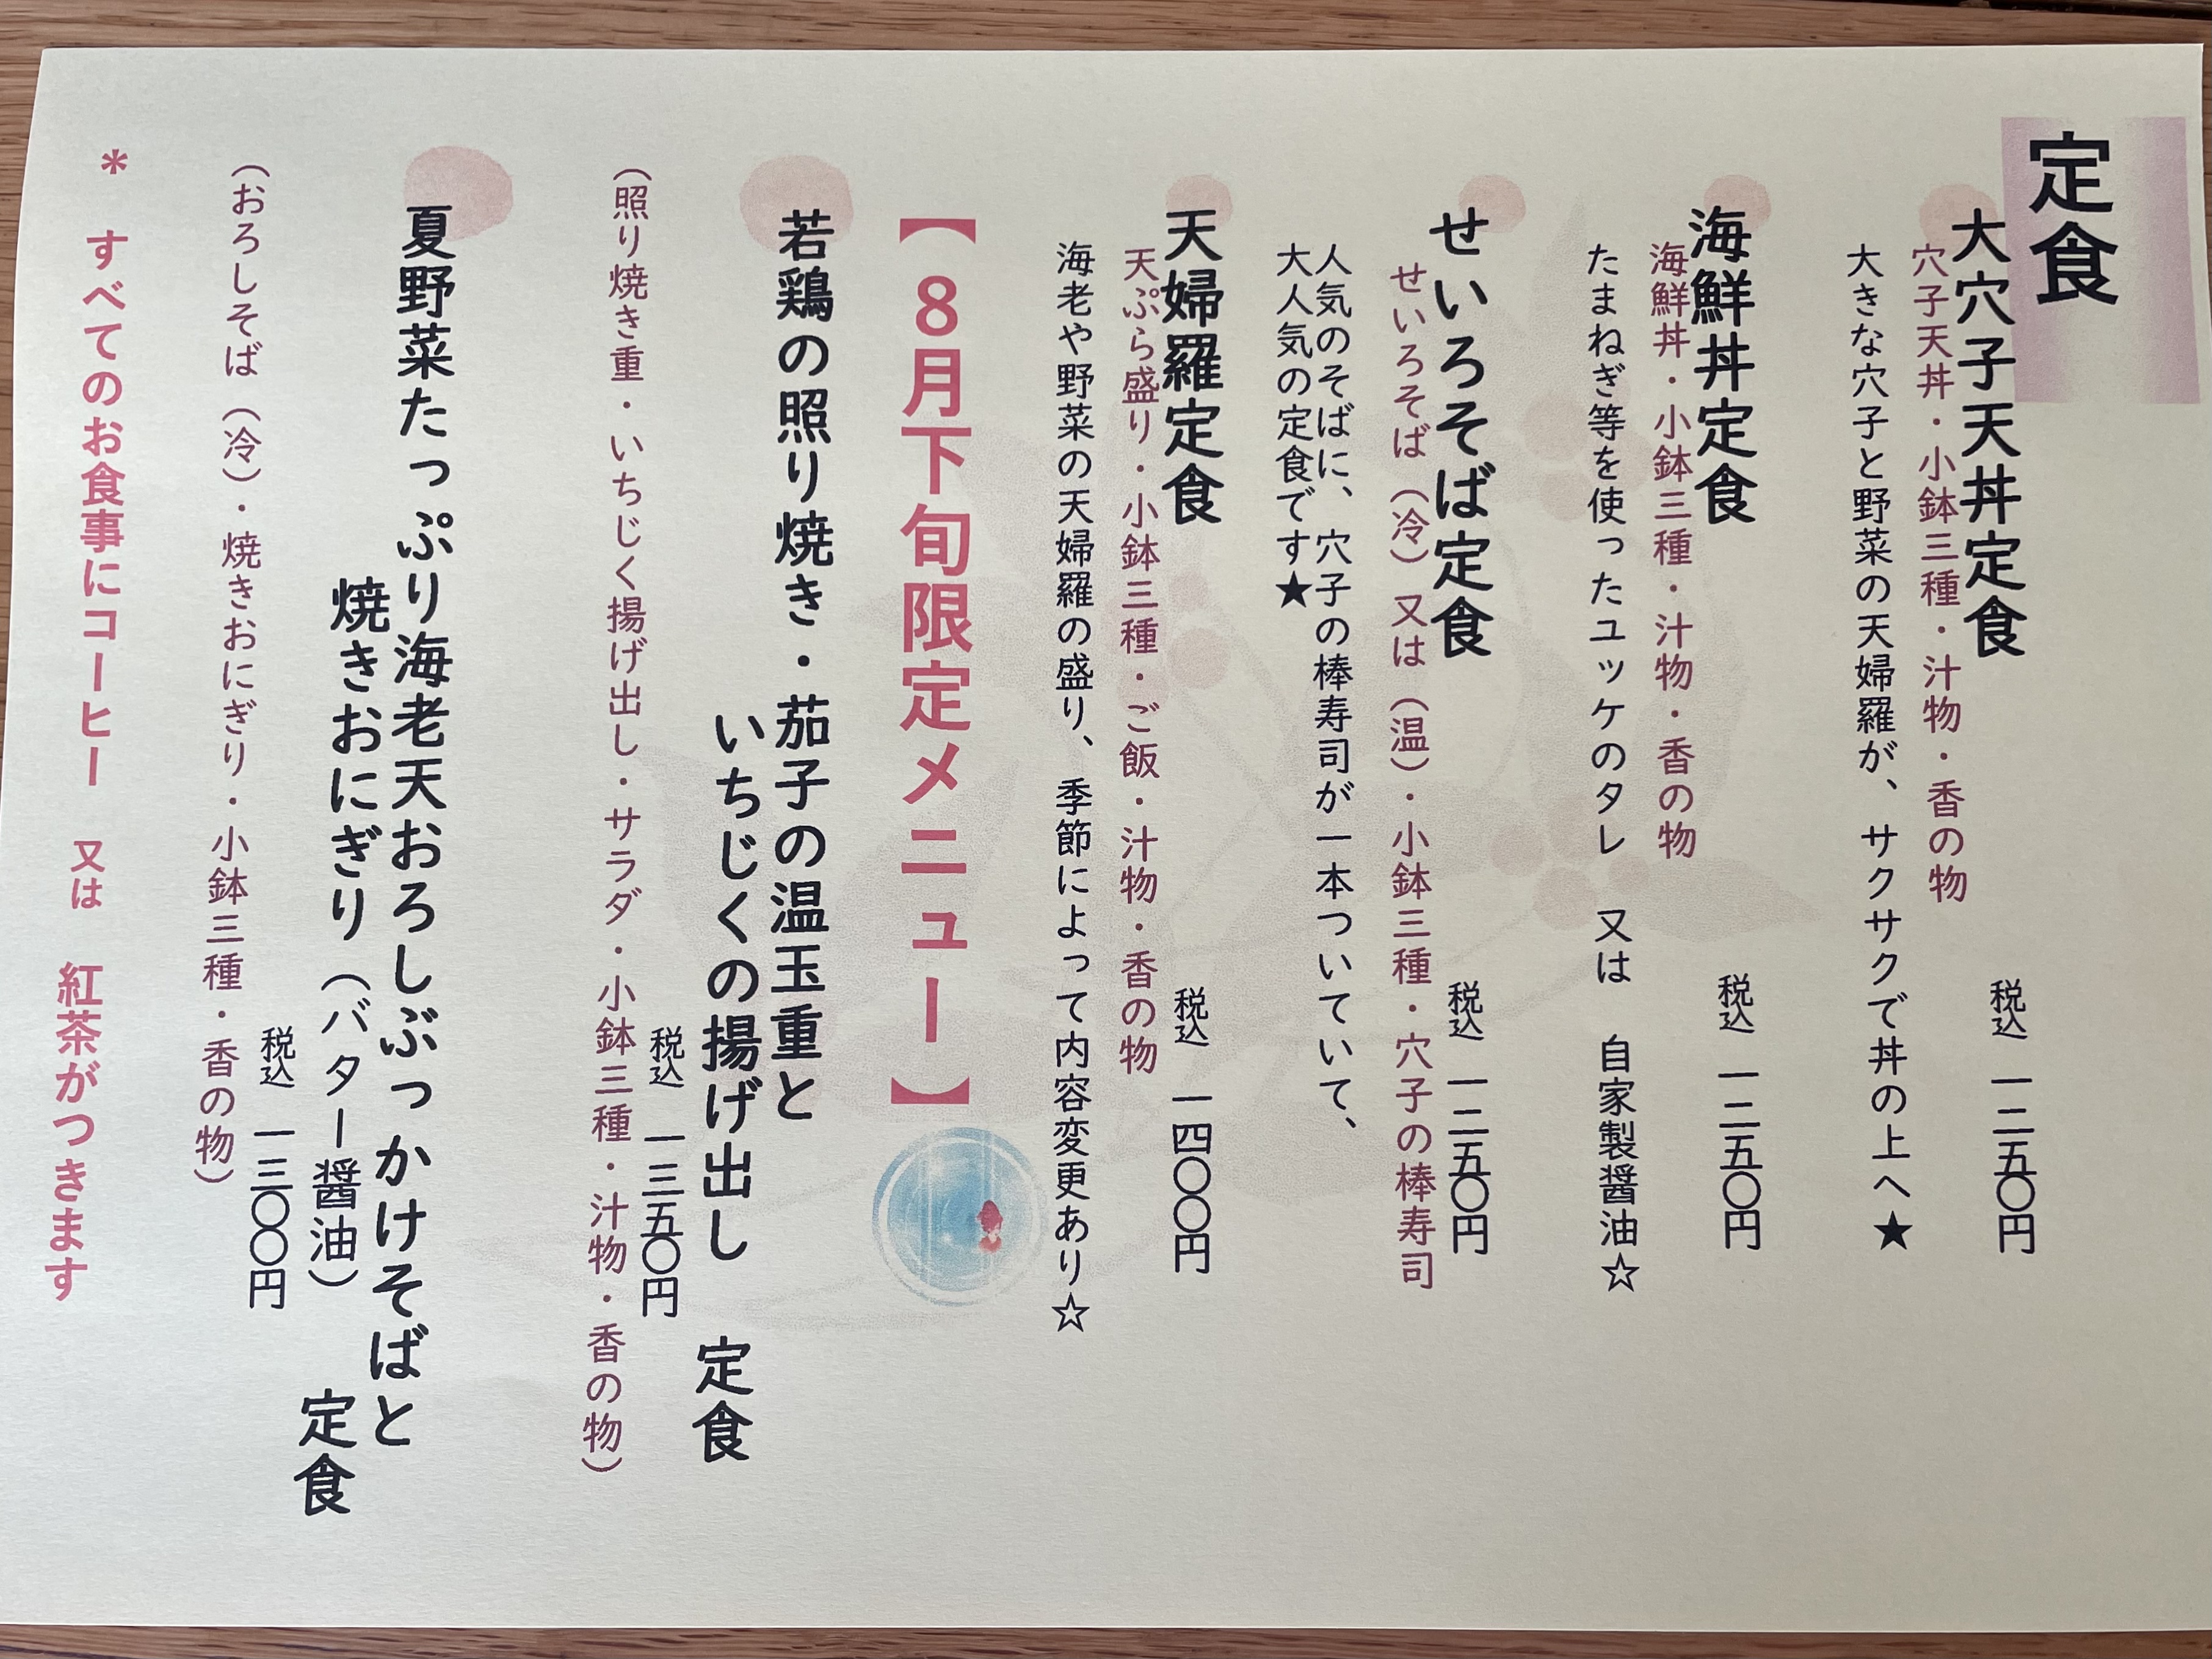 定食
大穴子天丼定食
税込 一二五〇円
穴子天丼・小鉢三種・汁物・香の物
大きな穴子と野菜の天婦羅が、サクサクで丼の上へ★
海鮮丼定食
税込 一二五〇円
海鮮丼・小鉢三種・汁物・香の物
たまねぎ等を使ったユッケのタレ 又は 自家製醤油☆
せいろそば定食
税込 一二五〇円
せいろそば（冷）又は（温）・小鉢三種・穴子の棒寿司
人気のそばに、穴子の棒寿司が一本ついていて、
大人気の定食です★
天婦羅定食
税込 一四〇〇円
天ぷら盛り・小鉢三種・ご飯・汁物・香の物
海老や野菜の天婦羅の盛り、季節によって内容変更あり☆
【８月下旬限定メニュー】
若鶏の照り焼き・茄子の温玉重と
いちじくの揚げ出し 定食
税込 一三五〇円
（照り焼き重・いちじく揚げ出し・サラダ・小鉢三種・汁物・香の物）
夏野菜たっぷり海老天おろしぶっかけそばと
焼きおにぎり（バター醤油） 定食
税込 一三〇〇円
（おろしそば（冷）・焼きおにぎり・小鉢三種・香の物）
＊ すべてのお食事にコーヒー 又は 紅茶がつきます